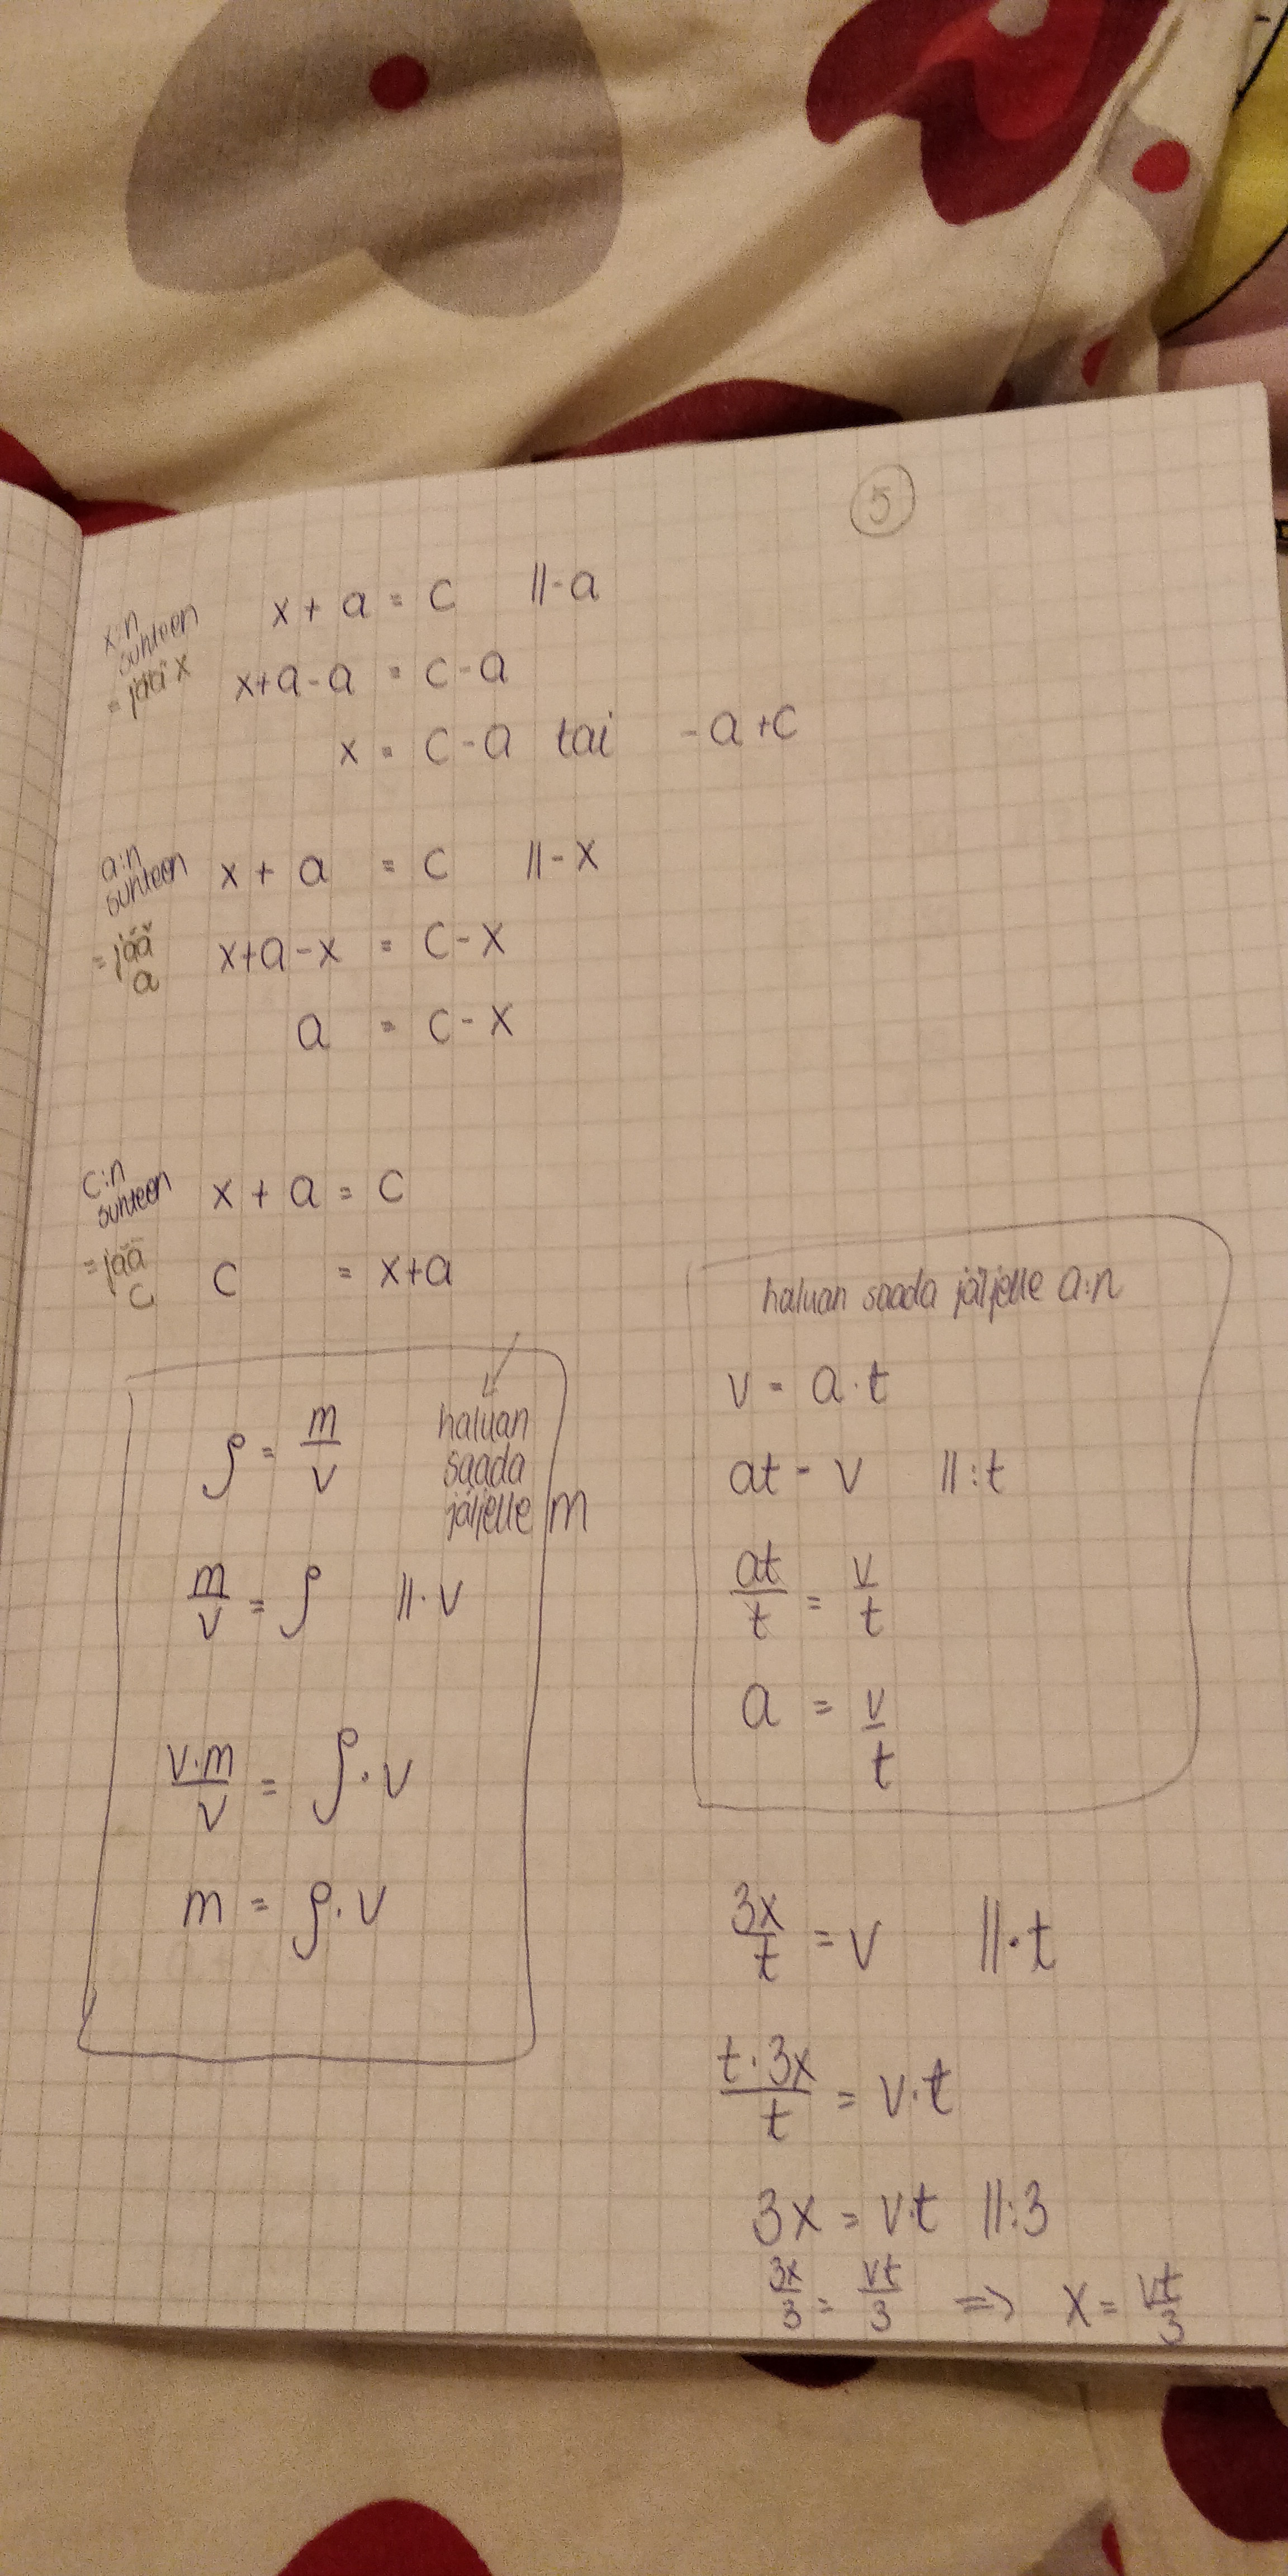 5
x:n suhteen = jää x
x + a = c || -a
x+a-a = c-a
x = c-a tai -a+c
a:n suhteen = jää a
x + a = c || -x
x+a-x = c-x
a = c-x
c:n suhteen = jää c
x + a = c
c = x+a
ρ = m/v
haluan
saada
jäljelle m
m/v = ρ || · v
v·m/v = ρ · v
m = ρ · v
haluan saada jäljelle a:n
v = a · t
at = v || :t
at/t = v/t
a = v/t
3x/t = v || · t
t · 3x/t = v · t
3x = v·t || :3
3x/3 = vt/3 => x = vt/3